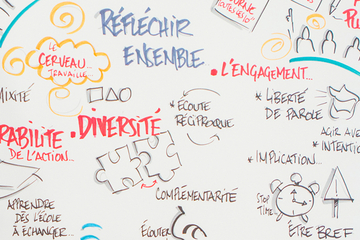 TOUTES LES
RÉFLÉCHIR
ENSEMBLE
LE
CERVEAU...
TRAVAILLE
• L'ENGAGEMENT...
MIXITÉ
* ÉCOUTE
RÉCIPROQUE
* LIBERTÉ
DE PAROLE
RABILITÉ
DE L'ACTION...
• DIVERSITÉ
AGIR AVE
* INTENTIO
* IMPLICATION...
COMPLÉMENTARITÉ
APPRENDRE
DÈS L'ÉCOLE
À ÉCHANGER...
STOP
TIME...
ÉCOUTER
ÊTRE BREF